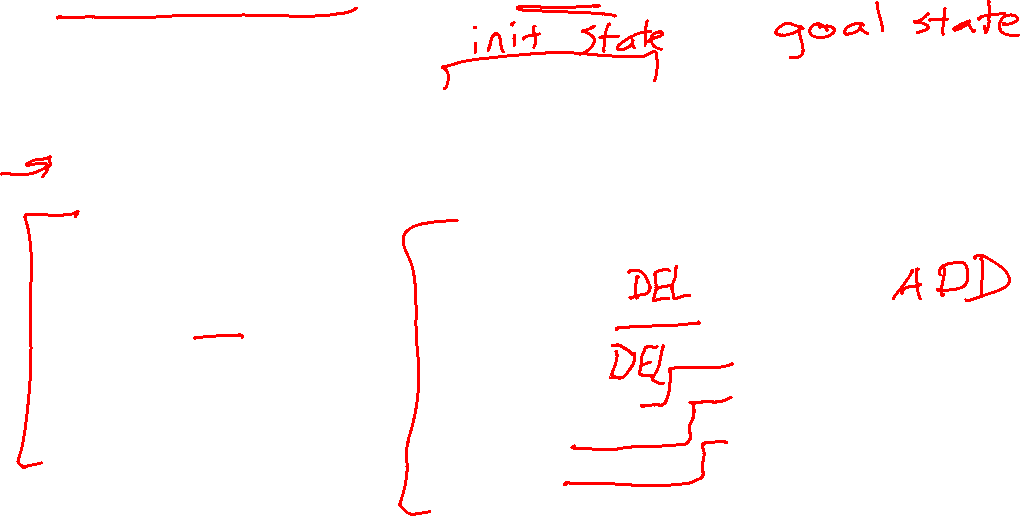 init state goal state
DEL ADD
DEL